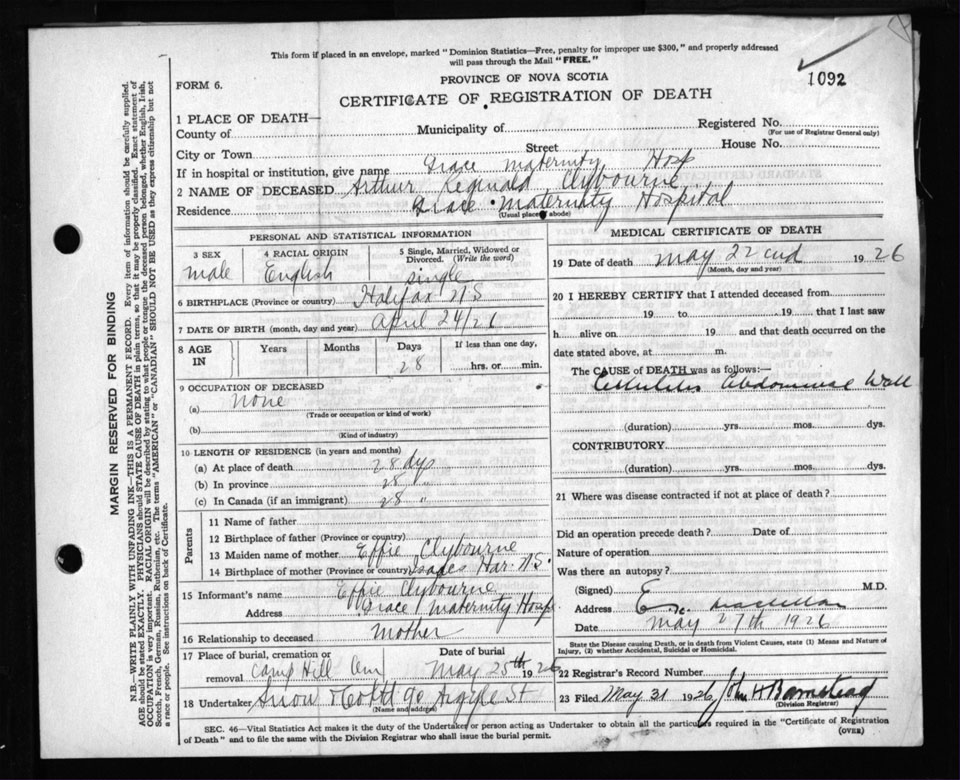 This form if placed in an envelope, marked "Dominion Statistics—Free, penalty for improper use $300," and properly addressed
will pass through the Mail "FREE."
1092
FORM 6.
PROVINCE OF NOVA SCOTIA
CERTIFICATE OF REGISTRATION OF DEATH
1 PLACE OF DEATH—
County of
Municipality of
Registered No.
(For use of Registrar General only)
City or Town
Street
House No.
If in hospital or institution, give name Grace Maternity Hosp
2 NAME OF DECEASED Arthur Reginald Clybourne
Residence Grace Maternity Hospital
(Usual place of abode)
PERSONAL AND STATISTICAL INFORMATION
3 SEX
male
4 RACIAL ORIGIN
English
5 Single, Married, Widowed or
Divorced. (Write the word)
single
6 BIRTHPLACE (Province or country) Halifax NS
7 DATE OF BIRTH (month, day and year) April 24/26
8 AGE
IN
Years
Months
Days
28
If less than one day,
hrs. or min.
9 OCCUPATION OF DECEASED
(a) none
(Trade or occupation or kind of work)
(b)
(Kind of industry)
10 LENGTH OF RESIDENCE (in years and months)
(a) At place of death 28 dys
(b) In province 28 "
(c) In Canada (if an immigrant) 28 "
Parents
11 Name of father
12 Birthplace of father (Province or country)
13 Maiden name of mother Effie Clybourne
14 Birthplace of mother (Province or country) Isaacs Har. N.S.
15 Informant's name Effie Clybourne
Address Grace Maternity Hosp
16 Relationship to deceased mother
17 Place of burial, cremation or
removal Camp Hill Cem
Date of burial
May 25th 1926
18 Undertaker Snow & Co Ltd 90 Argyle St
(Name and address)
MEDICAL CERTIFICATE OF DEATH
19 Date of death May 22 cnd 1926
(Month, day and year)
20 I HEREBY CERTIFY that I attended deceased from
19 to 19 that I last saw
h alive on 19 and that death occurred on the
date stated above, at m.
The CAUSE of DEATH was as follows:—
Cellulitis Abdominal Wall
(duration) yrs. mos. dys.
CONTRIBUTORY
(duration) yrs. mos. dys.
21 Where was disease contracted if not at place of death?
Did an operation precede death? Date of
Nature of operation
Was there an autopsy?
(Signed) E. M.D.
Address
Date May 27th 1926
State the Disease causing Death, or in death from Violent Causes, state (1) Means and Nature of
Injury, (2) whether Accidental, Suicidal or Homicidal.
22 Registrar's Record Number
23 Filed May 31 1926 John H Barnstead
(Division Registrar)
SEC. 46—Vital Statistics Act makes it the duty of the Undertaker or person acting as Undertaker to obtain all the particulars required in the "Certificate of Registration
of Death" and to file the same with the Division Registrar who shall issue the burial permit.
(OVER)
MARGIN RESERVED FOR BINDING
N.B.—WRITE PLAINLY WITH UNFADING INK—THIS IS A PERMANENT RECORD. Every item of information should be carefully supplied.
AGE should be stated EXACTLY. PHYSICIANS should STATE CAUSE OF DEATH in plain terms, so that it may be properly classified. Exact statement of
OCCUPATION is very important. RACIAL ORIGIN will be described by stating to what people or tongue the deceased person belonged, whether English, Irish,
Scotch, French, German, Russian, Ruthenian, etc. The terms "AMERICAN" or "CANADIAN" SHOULD NOT BE USED as they express citizenship but not
a race or people. See instructions on back of Certificate.